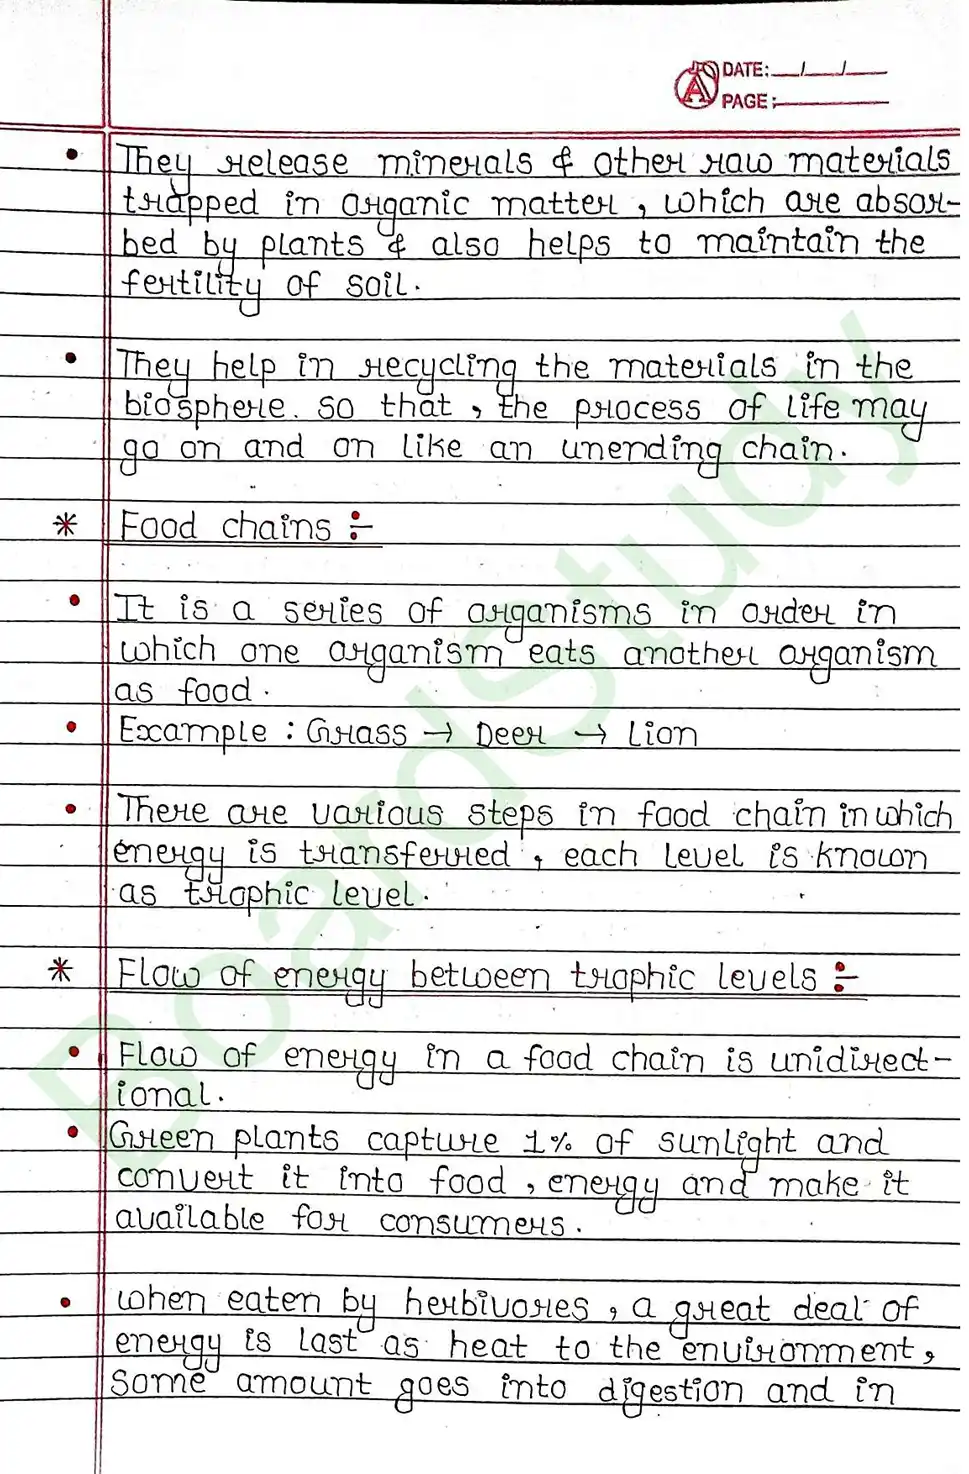 DATE: __/__/__
PAGE :
• They release minerals & other raw materials
trapped in organic matter , which are absor-
bed by plants & also helps to maintain the
fertility of soil.
• They help in recycling the materials in the
biosphere. so that , the process of life may
go on and on like an unending chain.
* Food chains :-
• It is a series of organisms in order in
which one organism eats another organism
as food.
• Example : Grass → Deer → Lion
• There are various steps in food chain in which
energy is transferred , each level is known
as trophic level.
* Flow of energy between trophic levels :-
• Flow of energy in a food chain is unidirect-
ional.
• Green plants capture 1% of sunlight and
convert it into food , energy and make it
available for consumers.
• when eaten by herbivores , a great deal of
energy is last as heat to the environment ,
Some amount goes into digestion and in
BoardStudy